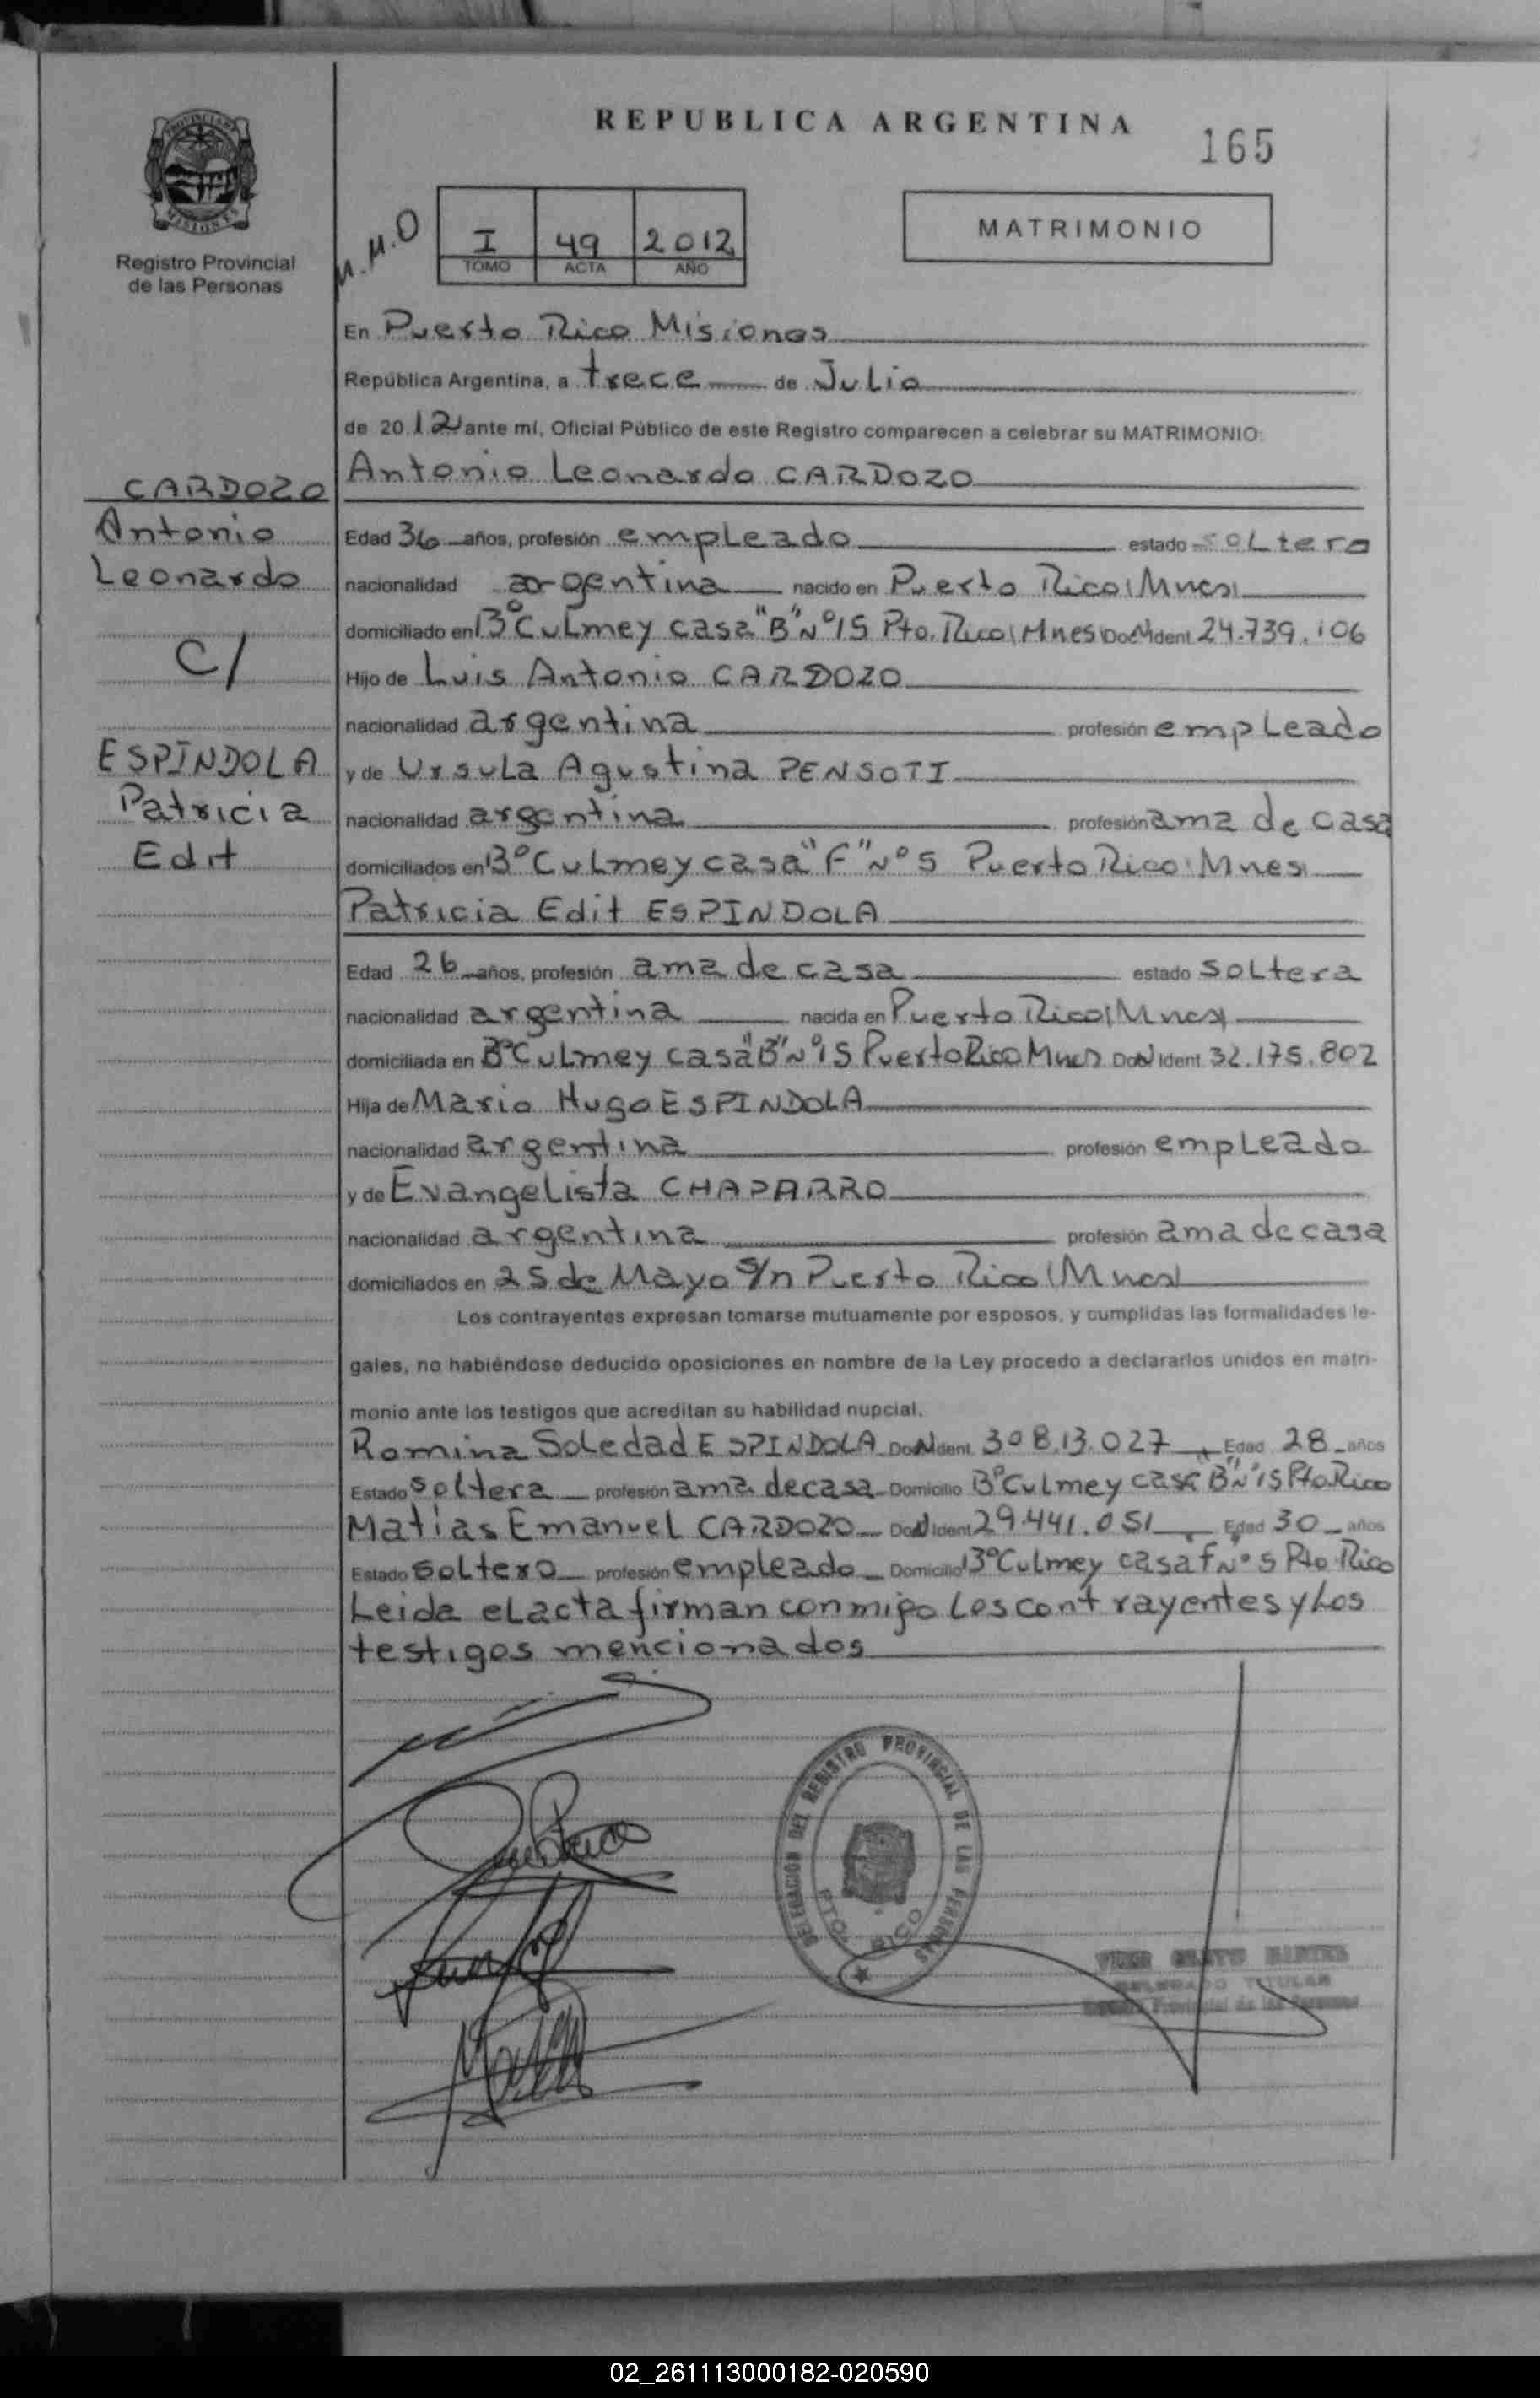 REPUBLICA ARGENTINA
165
PROVINCIA DE
MISIONES
Registro Provincial
de las Personas
M.M.O
I 49 2012
TOMO ACTA AÑO
MATRIMONIO
En Puerto Rico Misiones
República Argentina, a trece de Julio
de 2012 ante mí, Oficial Público de este Registro comparecen a celebrar su MATRIMONIO:
Antonio Leonardo CARDOZO
CARDOZO
Antonio
Leonardo
C/
ESPINDOLA
Patricia
Edit
Edad 36 años, profesión empleado estado soltero
nacionalidad argentina nacido en Puerto Rico (Mnes)
domiciliado en Bº Culmey casa "B" Nº 15 Pto. Rico (Mnes) Doc N Ident. 24.739.106
Hijo de Luis Antonio CARDOZO
nacionalidad argentina profesión empleado
y de Ursula Agustina PENSOTI
nacionalidad argentina profesión ama de casa
domiciliados en Bº Culmey casa "F" Nº 5 Puerto Rico (Mnes)
Patricia Edit ESPINDOLA
Edad 26 años, profesión ama de casa estado soltera
nacionalidad argentina nacida en Puerto Rico (Mnes)
domiciliada en Bº Culmey casa "B" Nº 15 Puerto Rico Mnes Doc N Ident. 32.175.802
Hija de Mario Hugo ESPINDOLA
nacionalidad argentina profesión empleado
y de Evangelista CHAPARRO
nacionalidad argentina profesión ama de casa
domiciliados en 25 de Mayo s/n Puerto Rico (Mnes)
Los contrayentes expresan tomarse mutuamente por esposos, y cumplidas las formalidades le-
gales, no habiéndose deducido oposiciones en nombre de la Ley procedo a declararlos unidos en matri-
monio ante los testigos que acreditan su habilidad nupcial.
Romina Soledad ESPINDOLA Doc N Ident. 308.13.027 Edad 28 años
Estado soltera profesión ama de casa Domicilio Bº Culmey casa "B" Nº 15 Pto Rico
Matias Emanuel CARDOZO Doc N Ident 29.441.051 Edad 30 años
Estado soltero profesión empleado Domicilio Bº Culmey casa "F" Nº 5 Pto. Rico
Leida el acta firman conmigo los contrayentes y los
testigos mencionados
DELEGACION DEL REGISTRO PROVINCIAL DE LAS PERSONAS
PTO. RICO
DELEGADO TITULAR
Provincial de las Personas
02_261113000182-020590